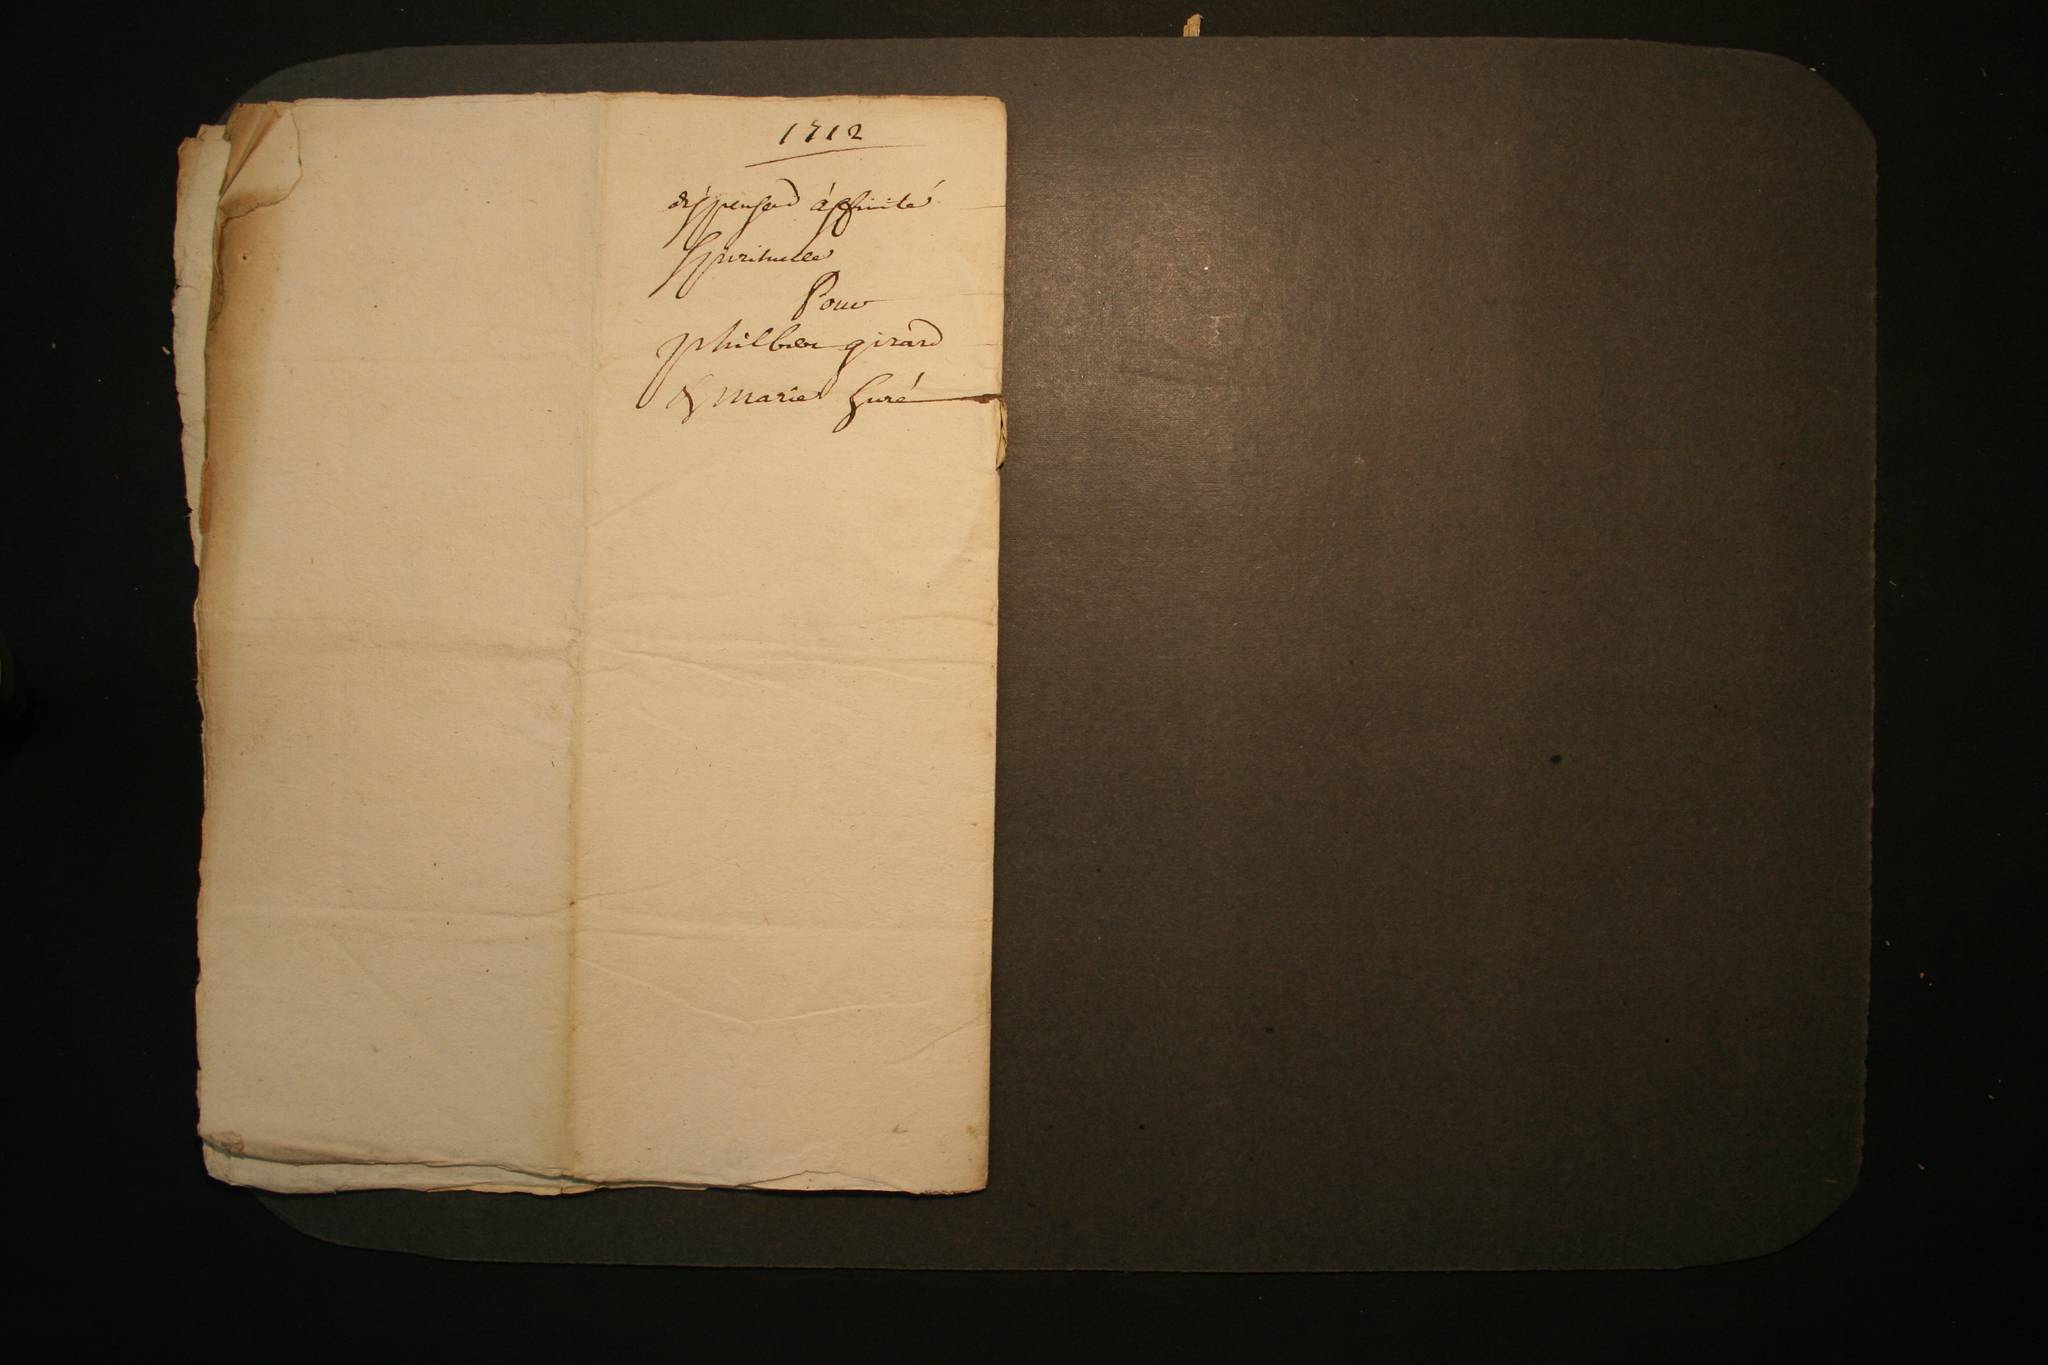 1712
dispense d'affinité
spirituelle
Pour
philber girard
& marie huré